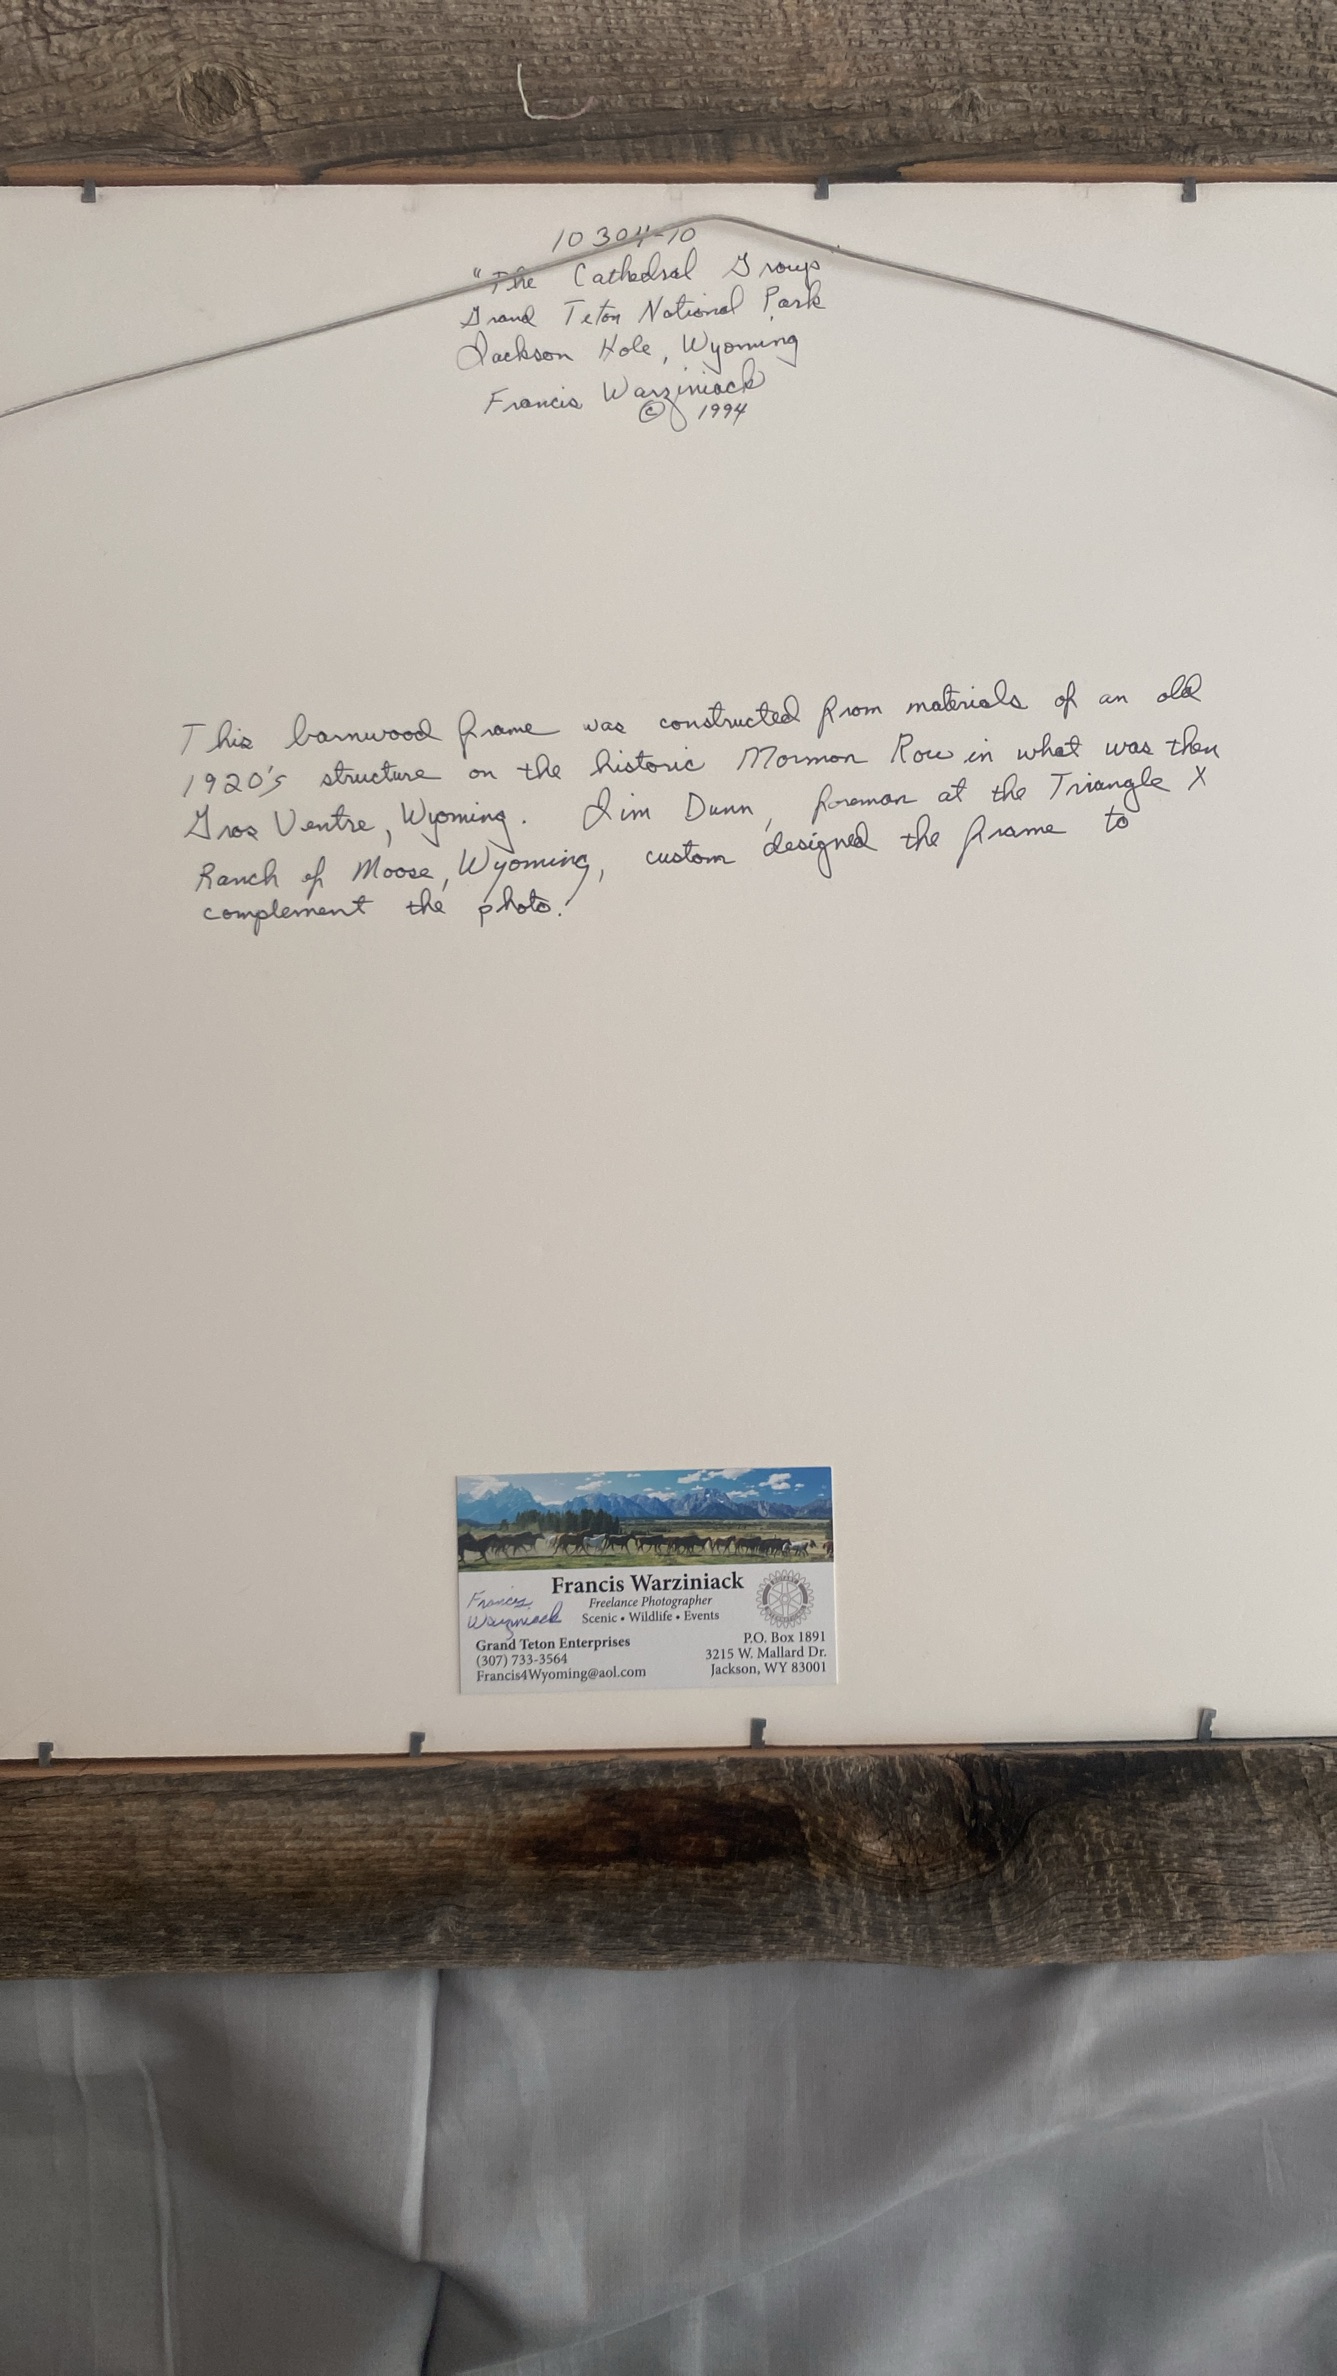 10304-10
"The Cathedral Group"
Grand Teton National Park
Jackson Hole, Wyoming
Francis Warziniack
© 1994
This barnwood frame was constructed from materials of an old
1920's structure on the historic Mormon Row in what was then
Gros Ventre, Wyoming. Jim Dunn, foreman at the Triangle X
Ranch of Moose, Wyoming, custom designed the frame to
complement the photo.
Francis Warziniack
Francis
Warziniack
Freelance Photographer
Scenic • Wildlife • Events
Grand Teton Enterprises
(307) 733-3564
Francis4Wyoming@aol.com
P.O. Box 1891
3215 W. Mallard Dr.
Jackson, WY 83001